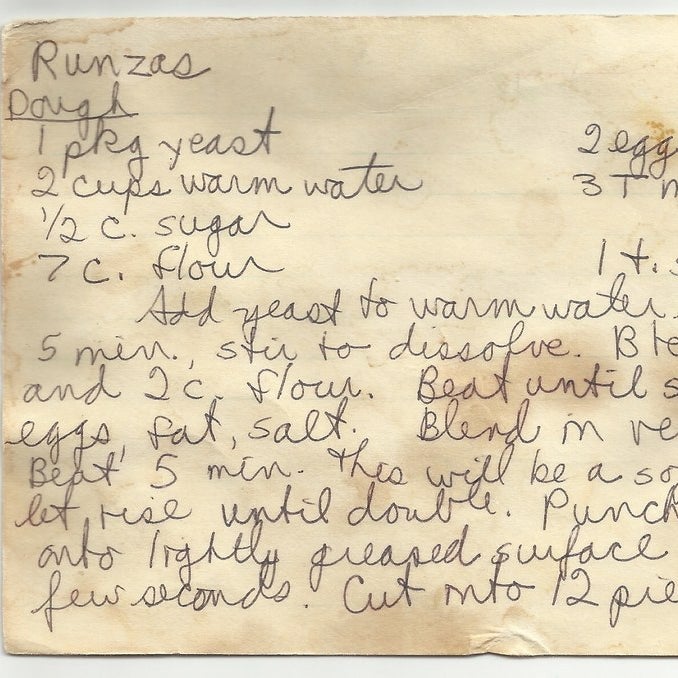 Runzas
Dough
1 pkg yeast 2 egg
2 cups warm water 3 T
1/2 c. sugar
7 c. flour 1 t.
Add yeast to warm water.
5 min., stir to dissolve.
and 2 c. flour. Beat until
eggs, fat, salt. Blend in
Beat 5 min. This will be a
let rise until double. Punch
onto lightly greased surface
few seconds. Cut into 12